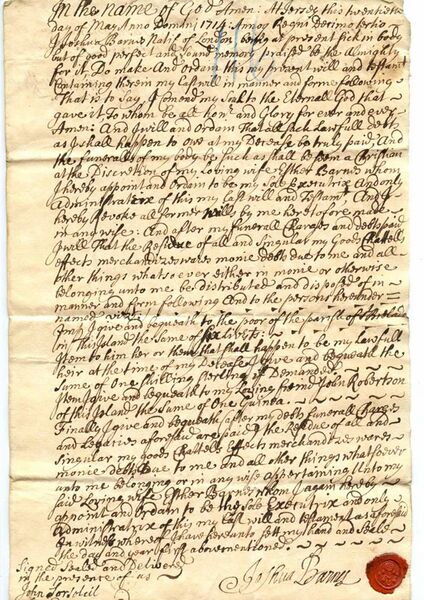 In the name of God Amen: At Jersey this twentieth
day of May Anno Domini 1714: Anno Regni Decimo tertio
I Joshua Barns Natif of London being at present sick in body
but of good perfect and sound memory praised be the Almighty
for it. Do make And ordain this my present will and testament
containing therein my Last will in manner and forme following
That is to Say I Comend my Soul to the Eternall God that
gave it To whom be all honr and Glory for ever and ever
Amen: And I will and Ordain That all such Lawfull debts
as I shall happen to owe at my Decease be truly paid, And
the funeralls of my body be such as shall beseem a Christian
at the Discretion of my Loving wife Esther Barns whom
I hereby appoint and Ordain to be my Sole Executrix And only
Administratrix of this my Last will and Testamt, And I
hereby Revoke all former Wills by me heretofore made
in any wise. And after my funerall Charges and debts paid
I will That the Residue of all and Singular my Goods Chattells
effects merchandizes wares monie debts due to me and all
other things whatsoever either in monie or otherwise
belonging unto me be distributed and disposed of in
manner and form following And to the persons hereunder
named
I give and bequeath to the poor of the parish of St
in this Island the Sume of Six
Item to him her or them that shall happen to be my Lawfull
heir at the time of my Decease I give and bequeath the
Sume of One Shilling Sterling if Demanded
Item I give and bequeath to my Loving friend John Robertson
of this Island the Sume of One Guinea
Finally I give and bequeath after my debts funerall Charges
and Legacies aforesaid are paid the Residue of all and
Singular my goods Chattells Effects merchandizes wares
monie debts Due to me and all other things whatsoever
unto me belonging or in any wise Appertaining Unto my
said Loving wife Esther Barns whom I again hereby
appoint and Ordain to be the Sole Executrix and only
Administratrix of this my Last will and testament as aforesaid
In witness whereof I have hereunto sett my hand and Seale
The day and year first abovementioned
Signed Sealed and Delivered
in the presence of us
Joshua Barns
John